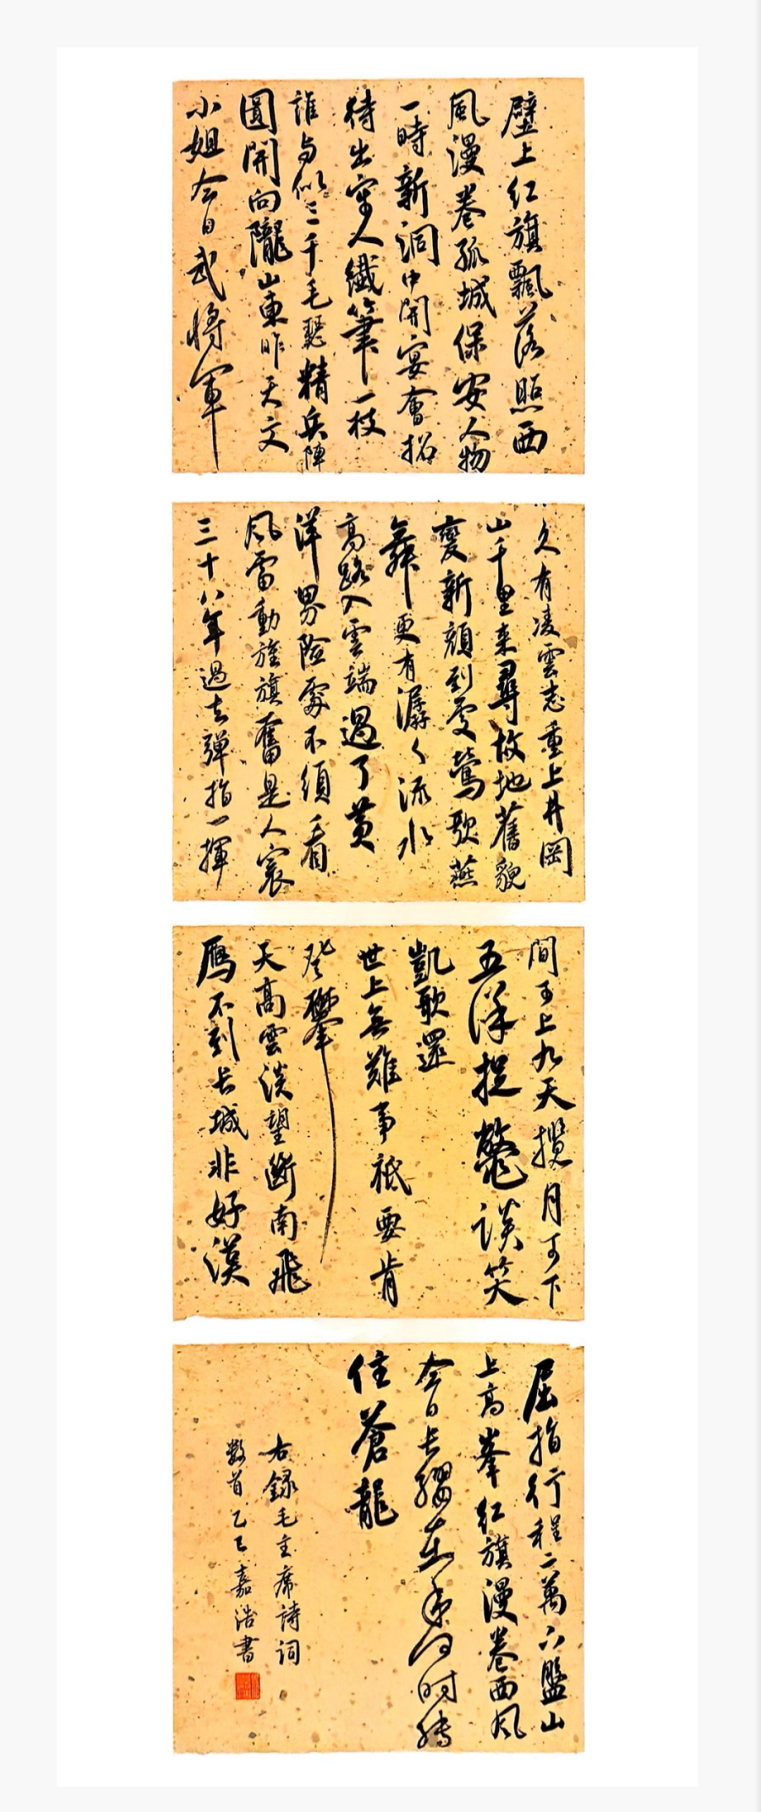 壁上紅旗飄落照西
風漫卷孤城保安人物
一時新洞中開宴會招
待出牢人纖筆一枝
誰与似三千毛瑟精兵陣
圖開向隴山東昨天文
小姐今日武將軍
久有凌雲志重上井岡
山千里来尋故地舊貌
變新顔到處鶯歌燕
舞更有潺々流水
高路入雲端過了黄
洋界险處不須看
風雷動旌旗奮是人寰
三十八年過去彈指一揮
間可上九天攬月可下
五洋捉鱉談笑
凱歌還
世上無難事祗要肯
登攀
天高雲淡望斷南飛
雁不到长城非好漢
屈指行程二萬六盤山
上高峯紅旗漫卷西风
今日长纓在手何时缚
住蒼龍
右録毛主席詩詞
數首乙巳嘉浩書